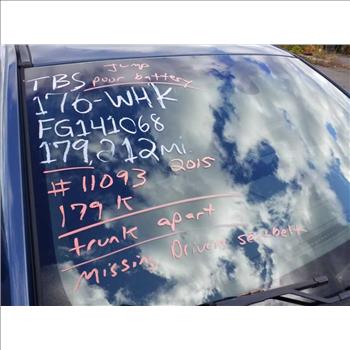 Jump
TBS poor battery
176-WHK
FG141068
179,212 mi.
#11093 2015
179 K
trunk apart
Missing Drivers seatbelt